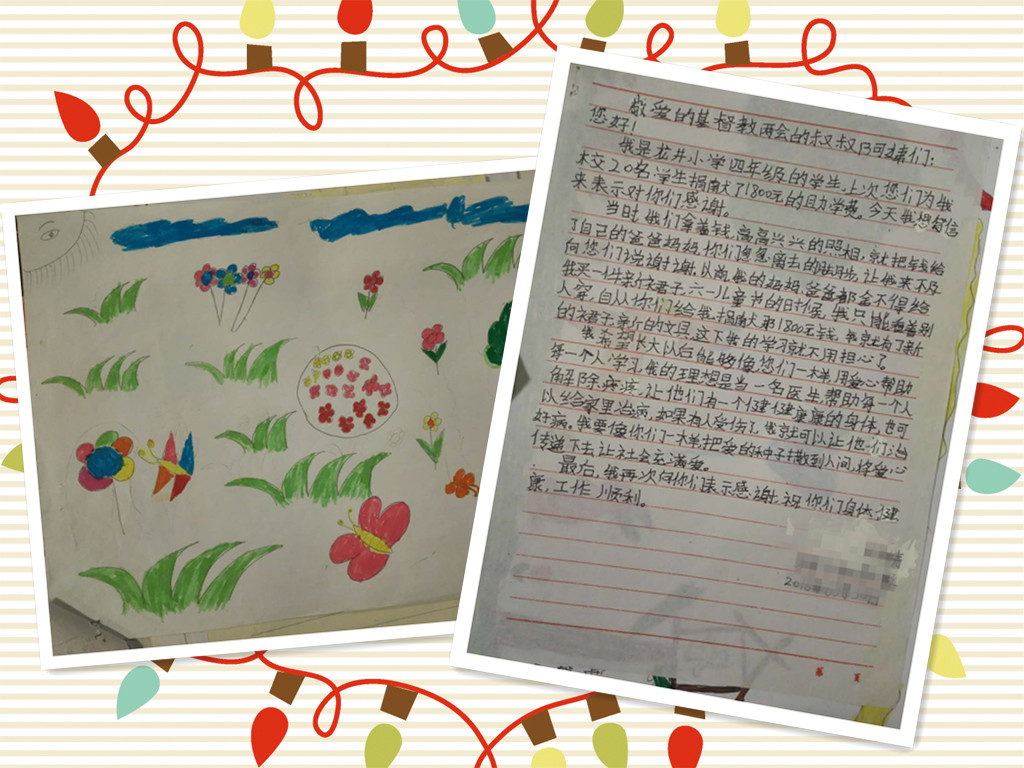 敬爱的基督教两会的叔叔阿姨们:
您好!
我是龙井小学四年级的学生,上次您们为我
校交20名学生捐献了1800元的助学费。今天我想写信
来表示对你们感谢。
当时我们拿着钱,高高兴兴的照相,
了自己的爸爸妈妈,你们 让我来不及
向您们说谢谢,以前我的妈妈,爸爸都舍不得给
我买一件新裙子,六一儿童节的日时候,我只能看着别
人穿,自从你们给我捐献了1800元钱,我就有了新
的裙子,新的文具,这下我的学习就不用担心了。
我希望长大以后能够像您们一样,用爱心帮助
每一个人,学习,我的理想是当一名医生帮助每一个人
解除病痛,让他们有一个健健康康的身体,也可
以给家里治病,如果有人受伤了,我就可以让他们治
好病,我要像你们一样把爱的种子撒到人间,将爱心
传递下去,让社会充满爱。
最后,我再次向你们表示感谢,祝你们身体健
康,工作顺利。
2010年
第 页